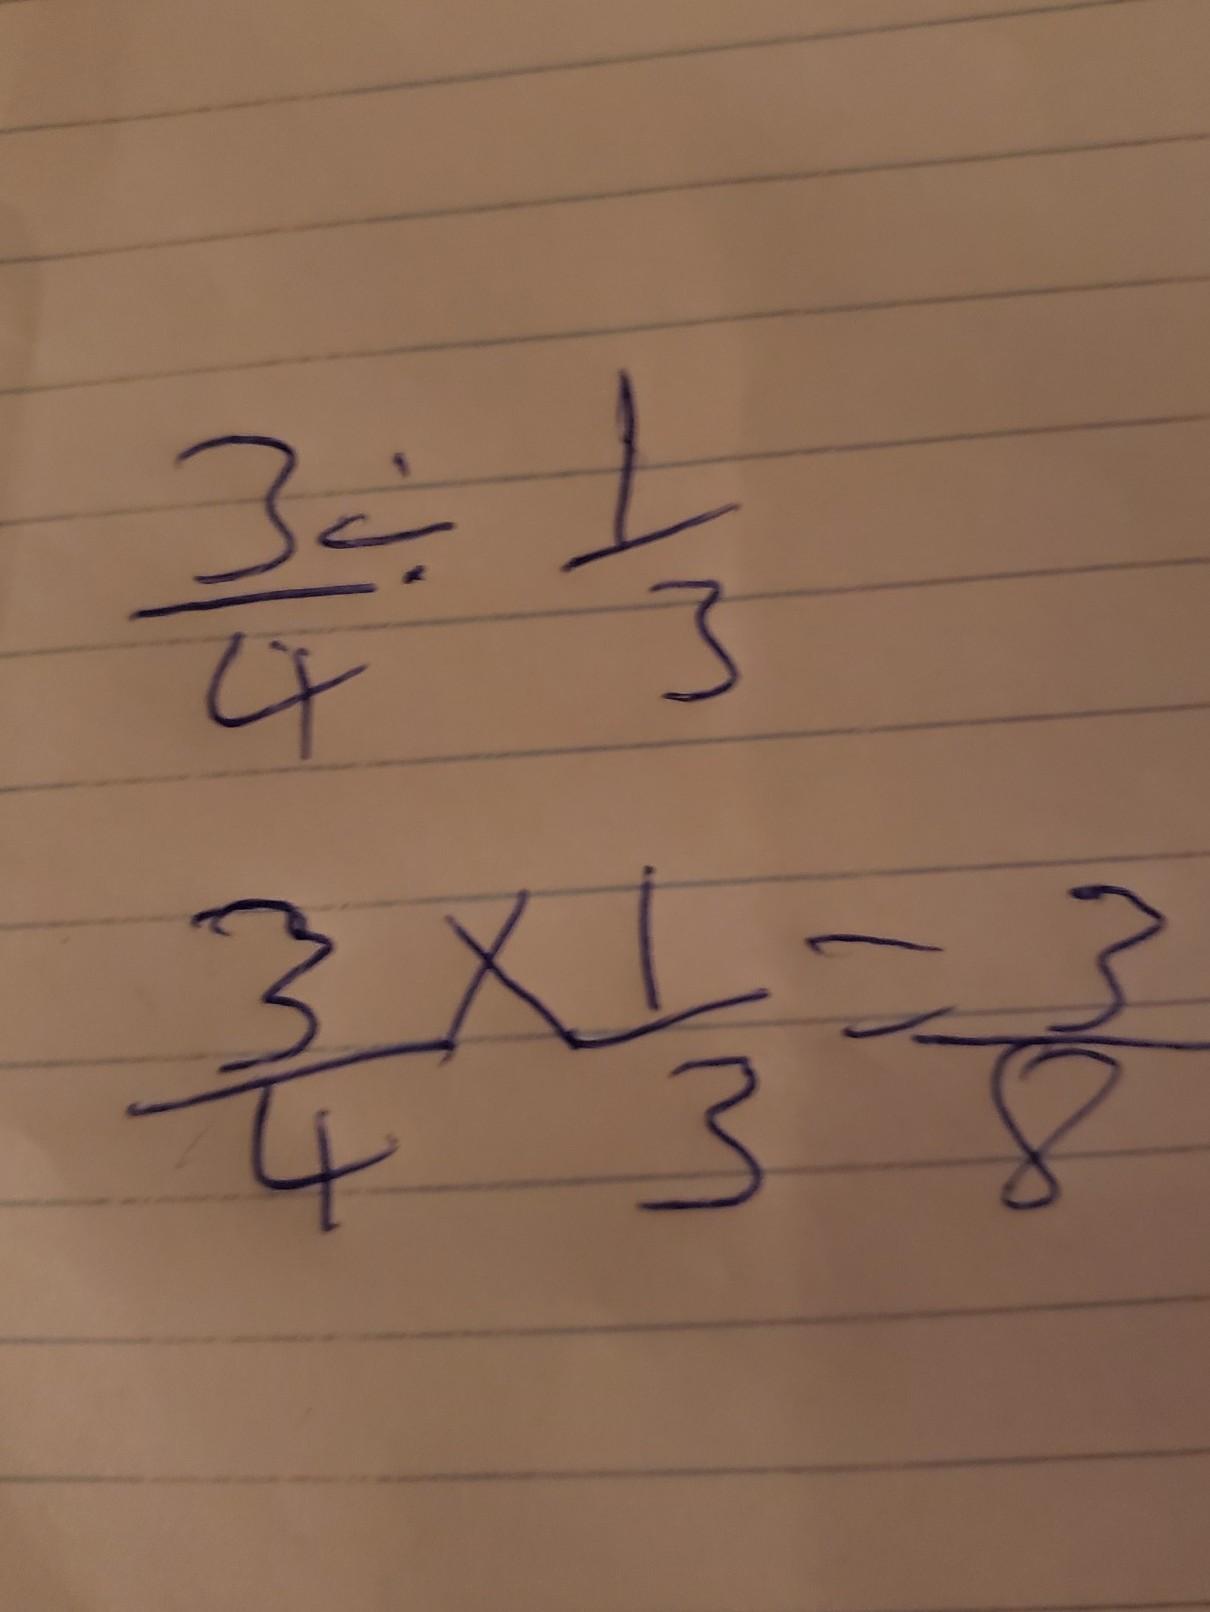 3/4 ÷ 1/3
3/4 × 1/3 = 3/8